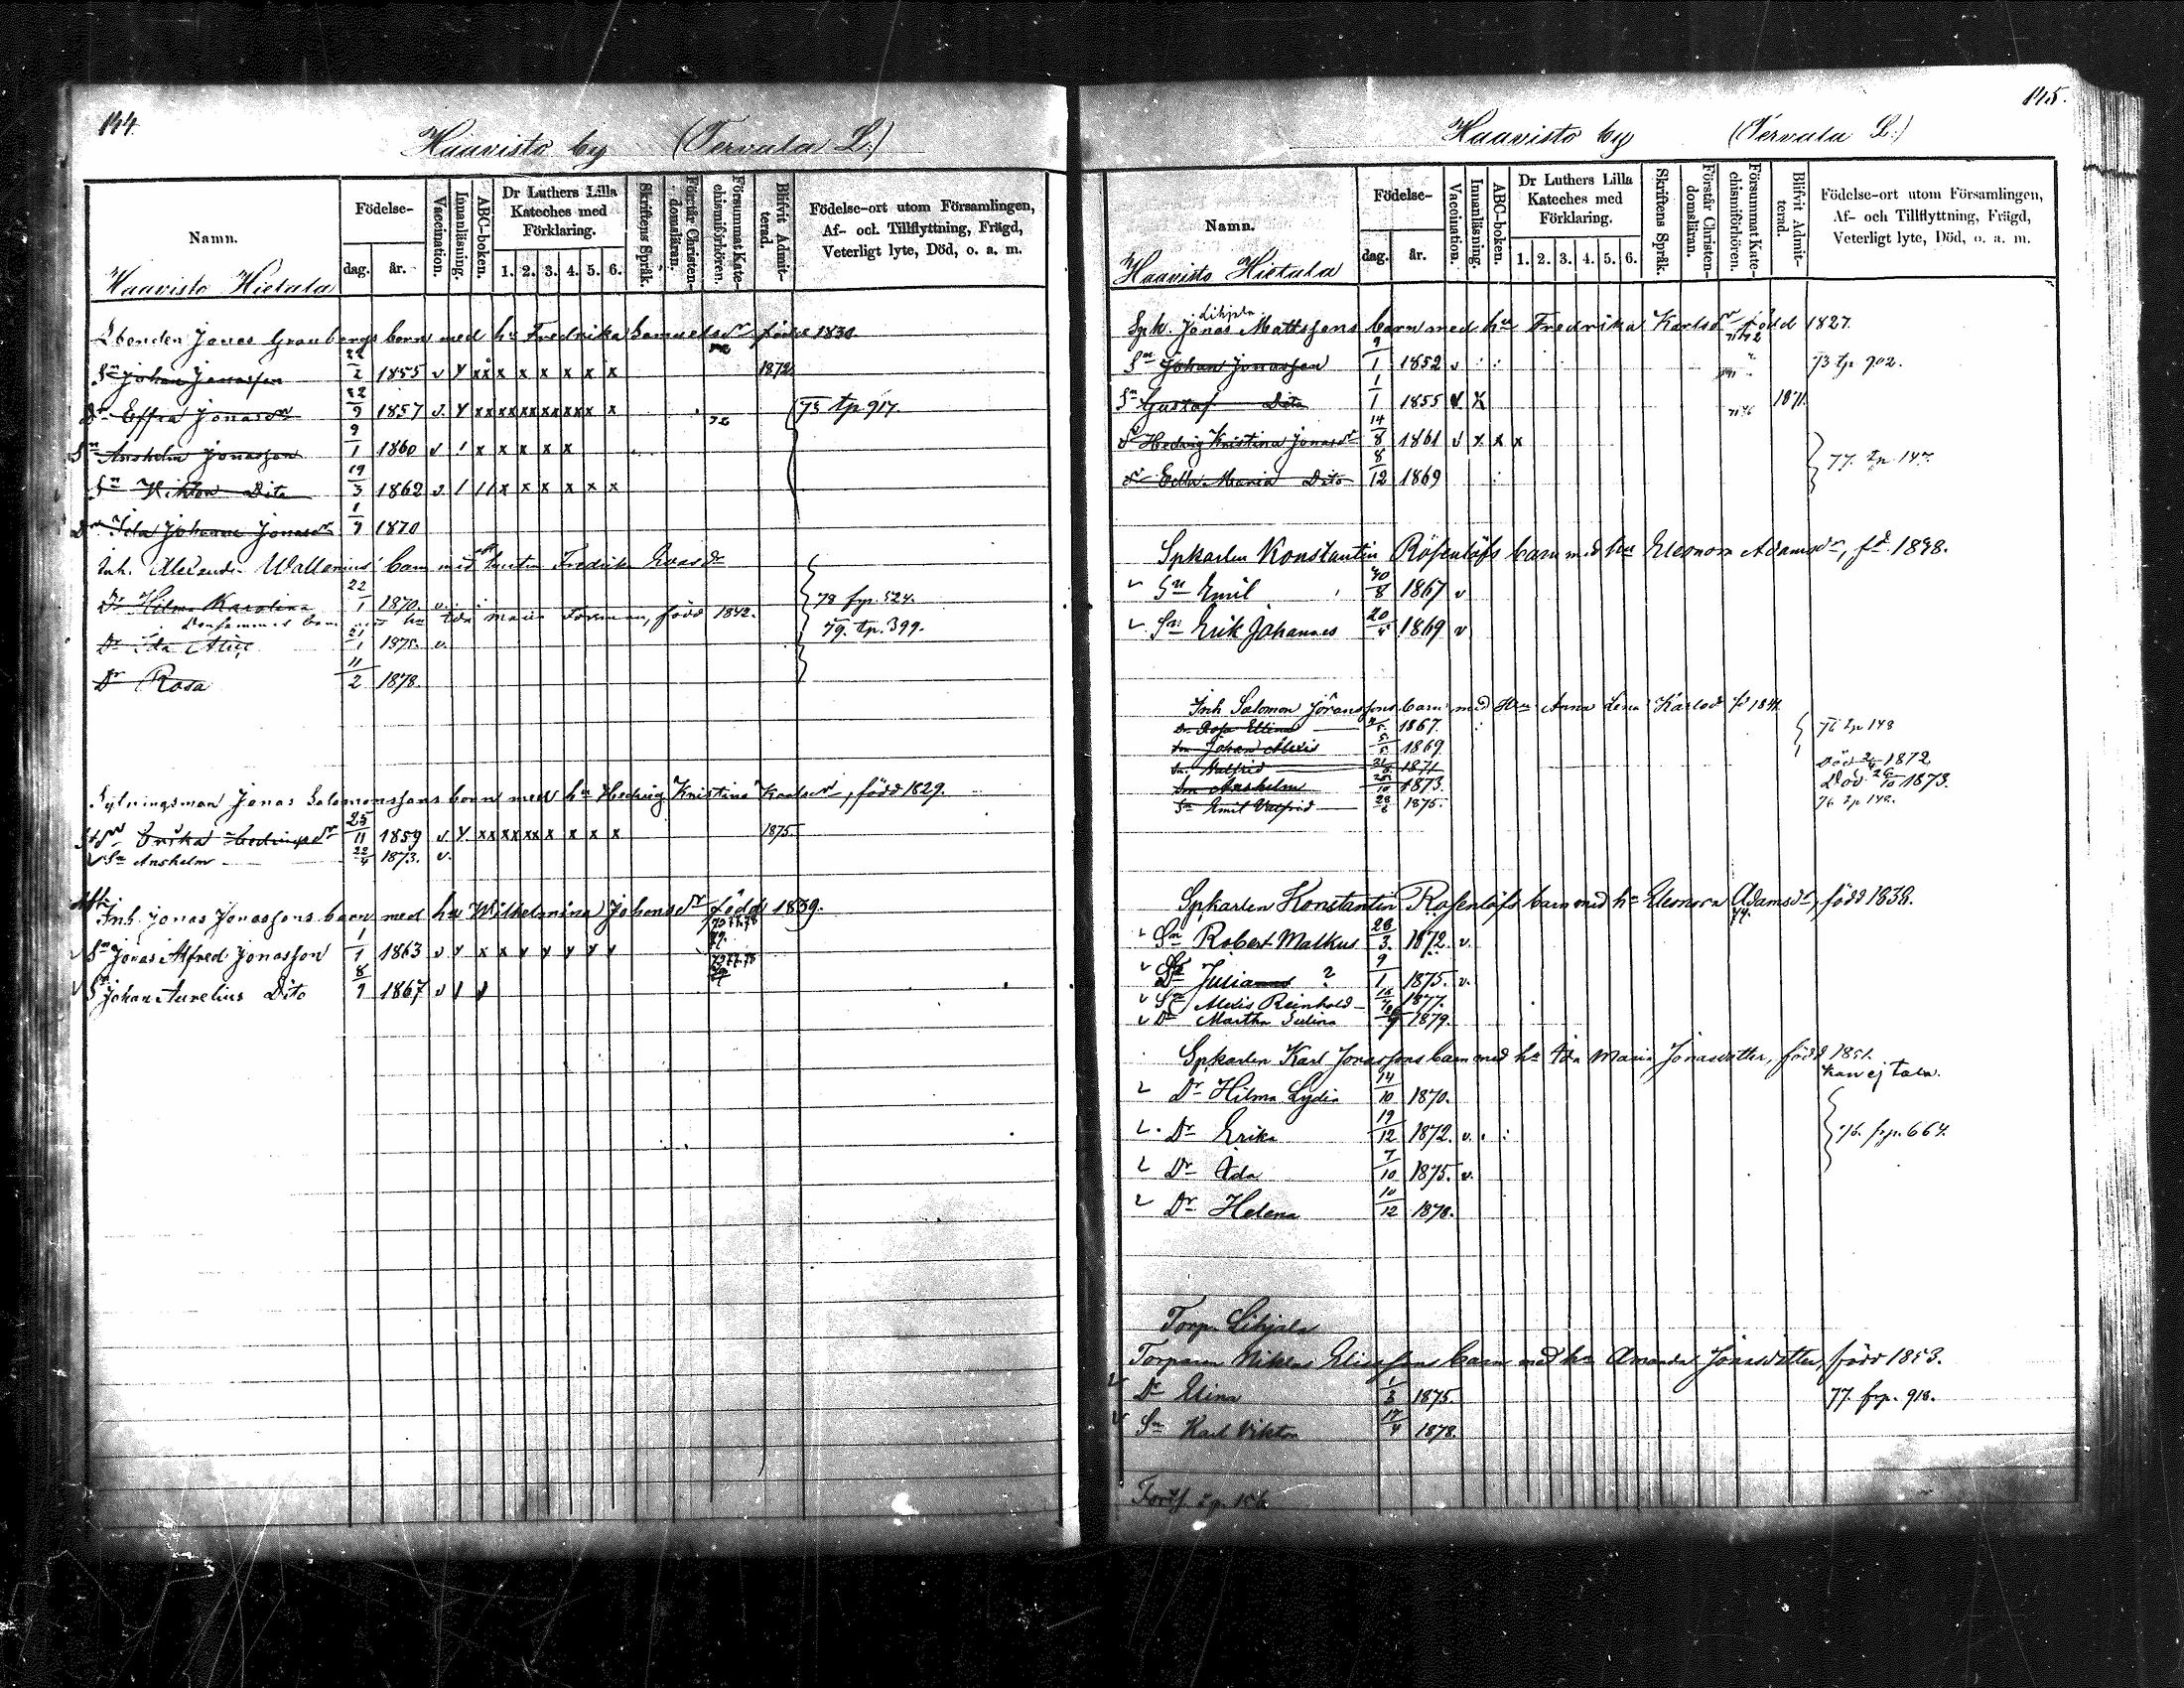 144.
Haavisto by (Tervala L.)
Namn.
Födelse-
dag.
år.
Vaccination.
Innanläsning.
ABC-boken.
Dr Luthers Lilla Kateches med Förklaring.
1. 2. 3. 4. 5. 6.
Skriftens Språk.
Förstår Christendomsläran.
Försummat Katechismiförhören.
Blifvit Admitterad.
Födelse-ort utom Församlingen, Af- och Tillflyttning, Frägd, Veterligt lyte, Död, o. a. m.
Haavisto Hietala
Jonas Granbergs barn med hu Fredrika Samuelsdr född 1830.
Sn Johan Jonasson 1855 v 1872
Dr Effra Jonasdr 22/9 1857 v. 75 tp 917.
Sn Anshelm Jonasson 9/1 1860 v
Sn Viktor Dito 19/3 1862 v.
Dr Ida Johanna Jonasdr 1/9 1870
Inh. Alexander Wallenius' barn med hustru Fredrika
Dr Hilma Karolina 22/1 1870. v. 78 frp. 524.
hu Ida Maria Forsman, född 1842.
Dr Ida Alice 21/1 1875. v. 79. tp. 399.
Dr Rosa 11/2 1878.
Jonas Salomonssons barn med hu Hedvig Kristina Karlsdr, född 1829.
Erika 25/11 1859 v 1875
v Sn Anshelm 22/4 1873. v.
Inh. Jonas Jonassons barn med hu Wilhelmina Johansdr född 1839.
v Sn Jonas Alfred Jonasson 1/1 1863 v
v Sn Johan Aurelius Dito 8/9 1867 v
145.
Haavisto by (Tervala L.)
Namn.
Födelse-
dag.
år.
Vaccination.
Innanläsning.
ABC-boken.
Dr Luthers Lilla Kateches med Förklaring.
1. 2. 3. 4. 5. 6.
Skriftens Språk.
Förstår Christendomsläran.
Försummat Katechismiförhören.
Blifvit Admitterad.
Födelse-ort utom Församlingen, Af- och Tillflyttning, Frägd, Veterligt lyte, Död, o. a. m.
Haavisto Hietala
Lihjala
Spk. Jonas Mattssons barn med hu Fredrika Karlsdr född 1827.
Sn Johan Jonasson 9/1 1852 v 73 tp 902.
Sn Gustaf Dito 1/1 1855 v 1871
Dr Hedvig Kristina Jonasdr 14/8 1861 v x x x
Dr Edla Maria Dito 8/12 1869 77. tp. 147.
Spkarlen Konstantin Rosenlöfs barn med hu Eleonora Adamsdr, fd. 1838.
v Sn Emil 30/8 1867 v
v Sn Erik Johannes 20/4 1869 v
Inh Salomon Jöranssons barn med Hu Anna Lena Karlsd
Dr Rosa Elina 1867. 76 tp 148
Sn Johan Alexis 1869
Sn. Valfrid 1871 Död 1872
Sn Anshelm 1873. Död 1873.
Sn Emil Valfrid 1875. 76 tp 148.
Spkarlen Konstantin Rosenlöfs barn med hu Eleonora Adamsdr, född 1838.
v Sn Robert Malkus 26/3. 1872. v.
v Dr Julianna ? 9/1 1875. v.
v Sn Alexis Reinhold 1877.
v Dr Martha 1879.
Spkarlen Karl Jonassons barn med hu Ida Maria Jonasdotter, född 1851.
kan ej tala.
v Dr Hilma Lydia 14/10 1870.
v Dr Erika 19/12 1872. v. 76. frp. 664.
v Dr Ida 7/10 1875. v.
v Dr Helena 10/12 1878.
Torp. Lihjala
Torparen Niklas Eliassons barn med hu Amanda Jonasdotter, född 1853.
v Dr Elina 1/3 1875 77. frp. 918.
v Sn Karl Viktor 17/4 1878.